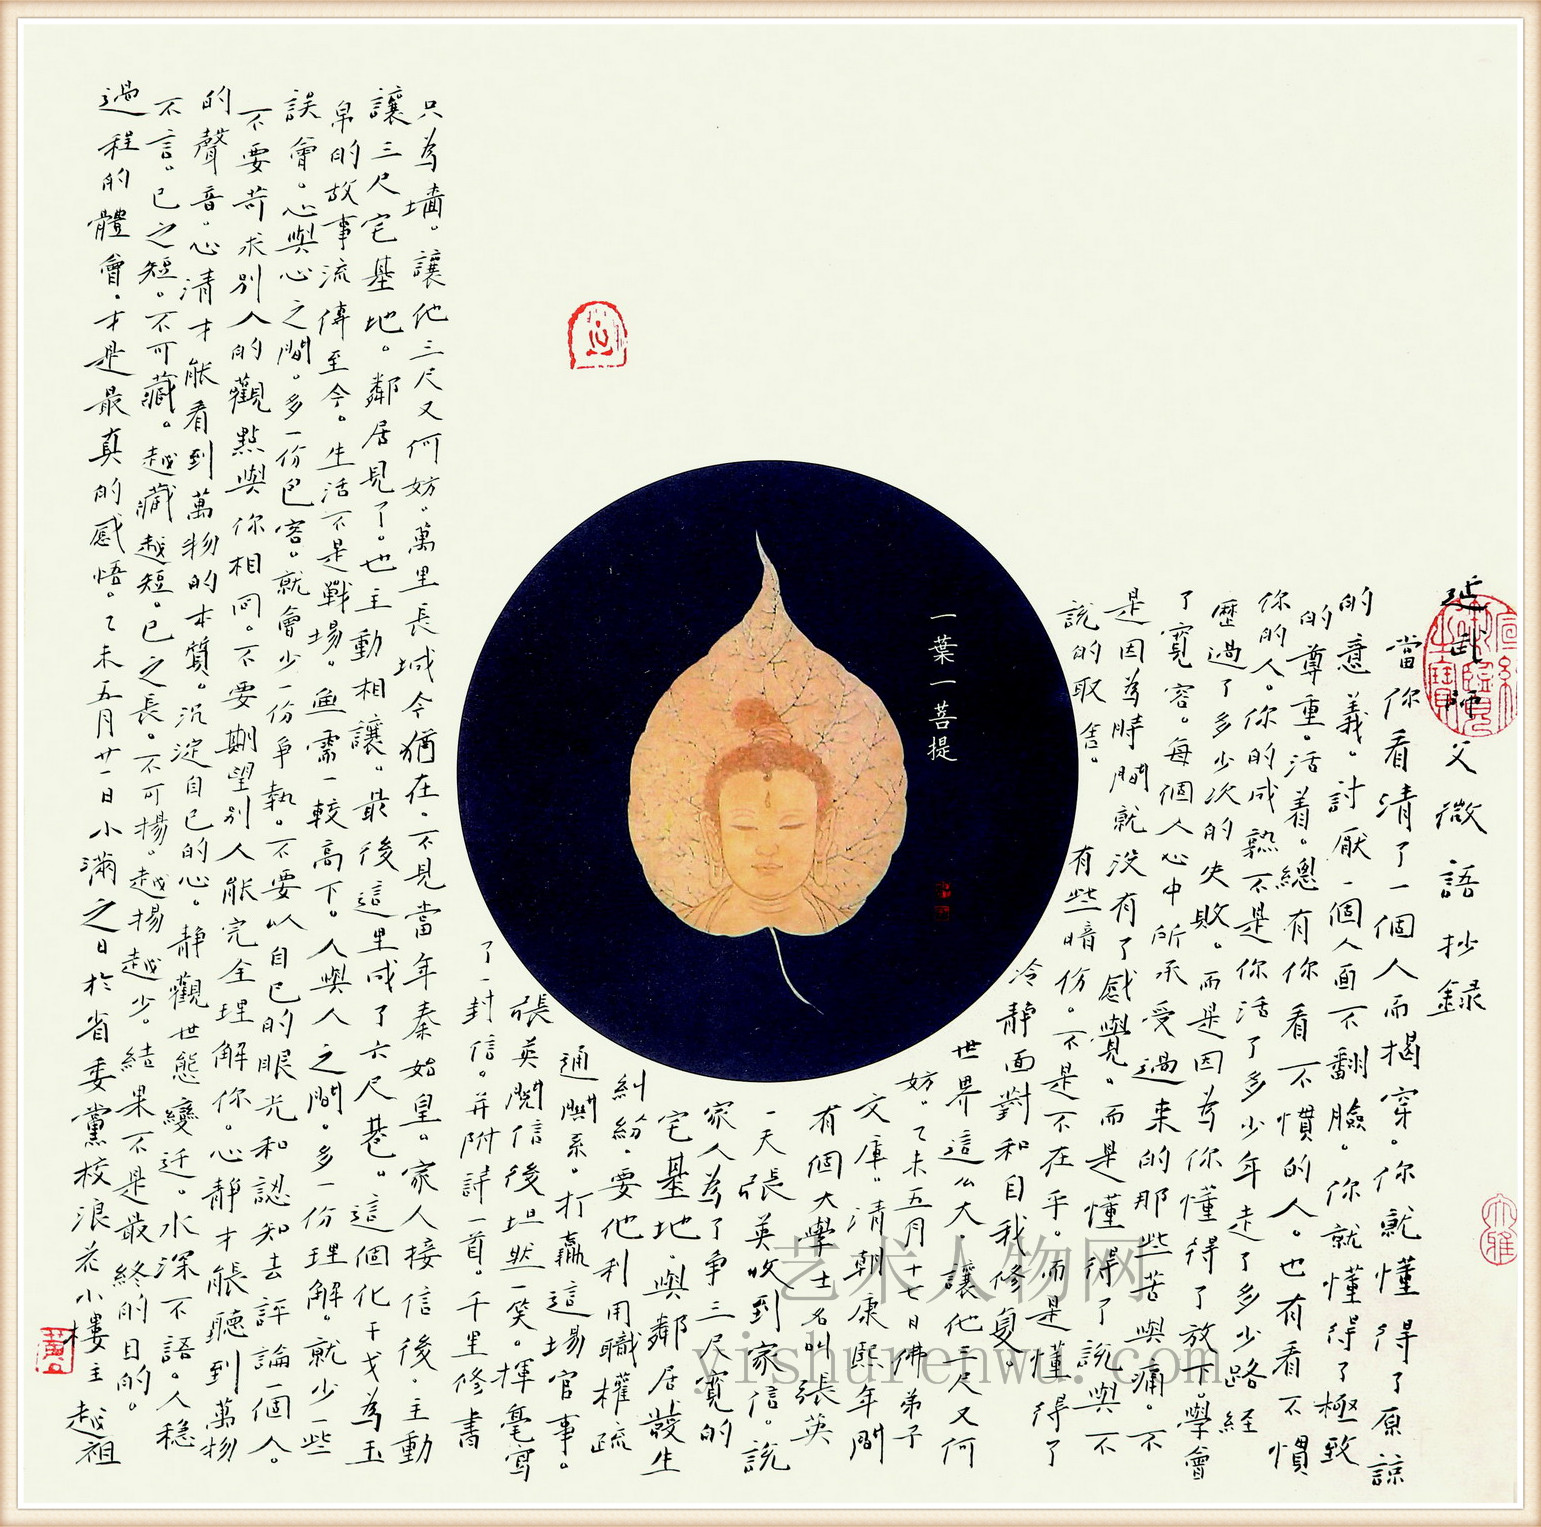 延武師父微語抄録
當你看清了一個人而揭穿。你就懂得了原諒
的意義。討厭一個人面不翻臉。你就懂得了極致
的尊重。活着。總有你看不慣的人。也有看不慣
你的人。你的成熟不是你活了多少年走了多少路経
歷過了多少次的失敗。而是因為你懂得了放下。學會
了寬容。每個人心中所承受過来的那些苦與痛。不
是因為時間就没有了感覺。而是懂得了說與不
說的取舍。有些暗伤。不是不在乎。而是懂得了
冷静面對和自我修复。
世界這么大。讓他三尺又何
妨。乙未五月十七日佛弟子
文庫。清朝康熙年間
有個大學士名叫張英
一天張英收到家信。說
家人為了争三尺寬的
宅基地。與鄰居發生
糾紛。要他利用職權疏
通關系。打赢這場官事。
張英閱信後坦然一笑。揮毫寫
了一封信。并附詩一首。千里修書
只為墙。讓他三尺又何妨。萬里長城今猶在。不見當年秦始皇。家人接信後。主動
讓三尺宅基地。鄰居見了。也主動相讓。最後這里成了六尺巷。這個化干戈為玉
帛的故事流傳至今。生活不是戰場。無需一較高下。人與人之間。多一份理解。就少一些
誤會。心與心之間。多一份包容。就會少一份争執。不要以自己的眼光和認知去評論一個人。
不要苛求別人的觀點與你相同。不要期望别人能完全理解你。心静才能聽到萬物
的聲音。心清才能看到萬物的本質。沉淀自己的心。静觀世態變迁。水深不語。人穩
不言。己之短。不可藏。越藏越短。己之長。不可揚。越揚越少。結果不是最終的目的。
過程的體會。才是最真的感悟。乙未五月廿一日小滿之日於省委黨校浪花小樓主 越祖
一葉一菩提
艺术人物网
yishurenwu.com